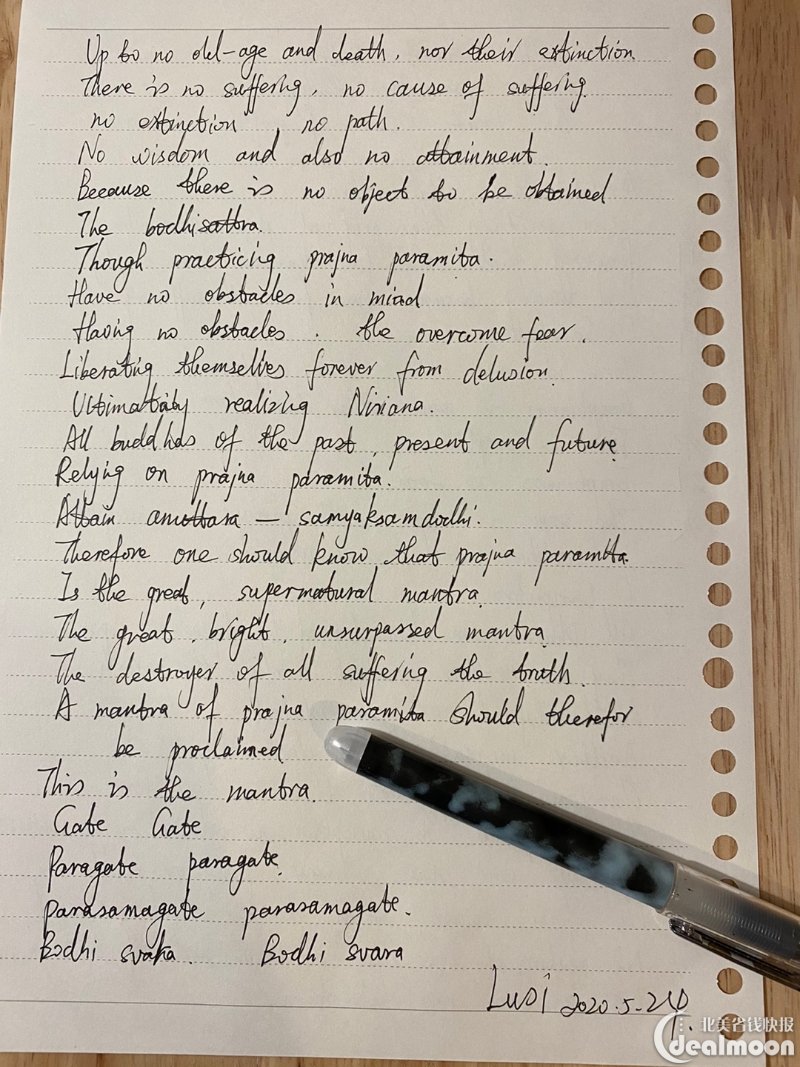 Up to no old-age and death, nor their extinction.
There is no suffering, no cause of suffering.
no extinction, no path.
No wisdom and also no attainment.
Because there is no object to be obtained
The bodhisattra.
Though practicing prajna paramita.
Have no obstacles in mind
Having no obstacles. the overcome fear.
Liberating themselves forever from delusion.
realizing Niriana.
All buddhas of the past, present and future.
Relying on prajna paramita.
Attain anuttara — samyaksamdodhi.
Therefore one should know that prajna paramita.
Is the great, supernatural mantra.
The great, bright, unsurpassed mantra.
The destroyer of all suffering the truth.
A mantra of prajna paramita should therefor
be proclaimed
This is the mantra.
Gate Gate
Paragate paragate.
Parasamagate parasamagate.
Bodhi svaha. Bodhi svara
2020.5.
北美省钱快报
dealmoon